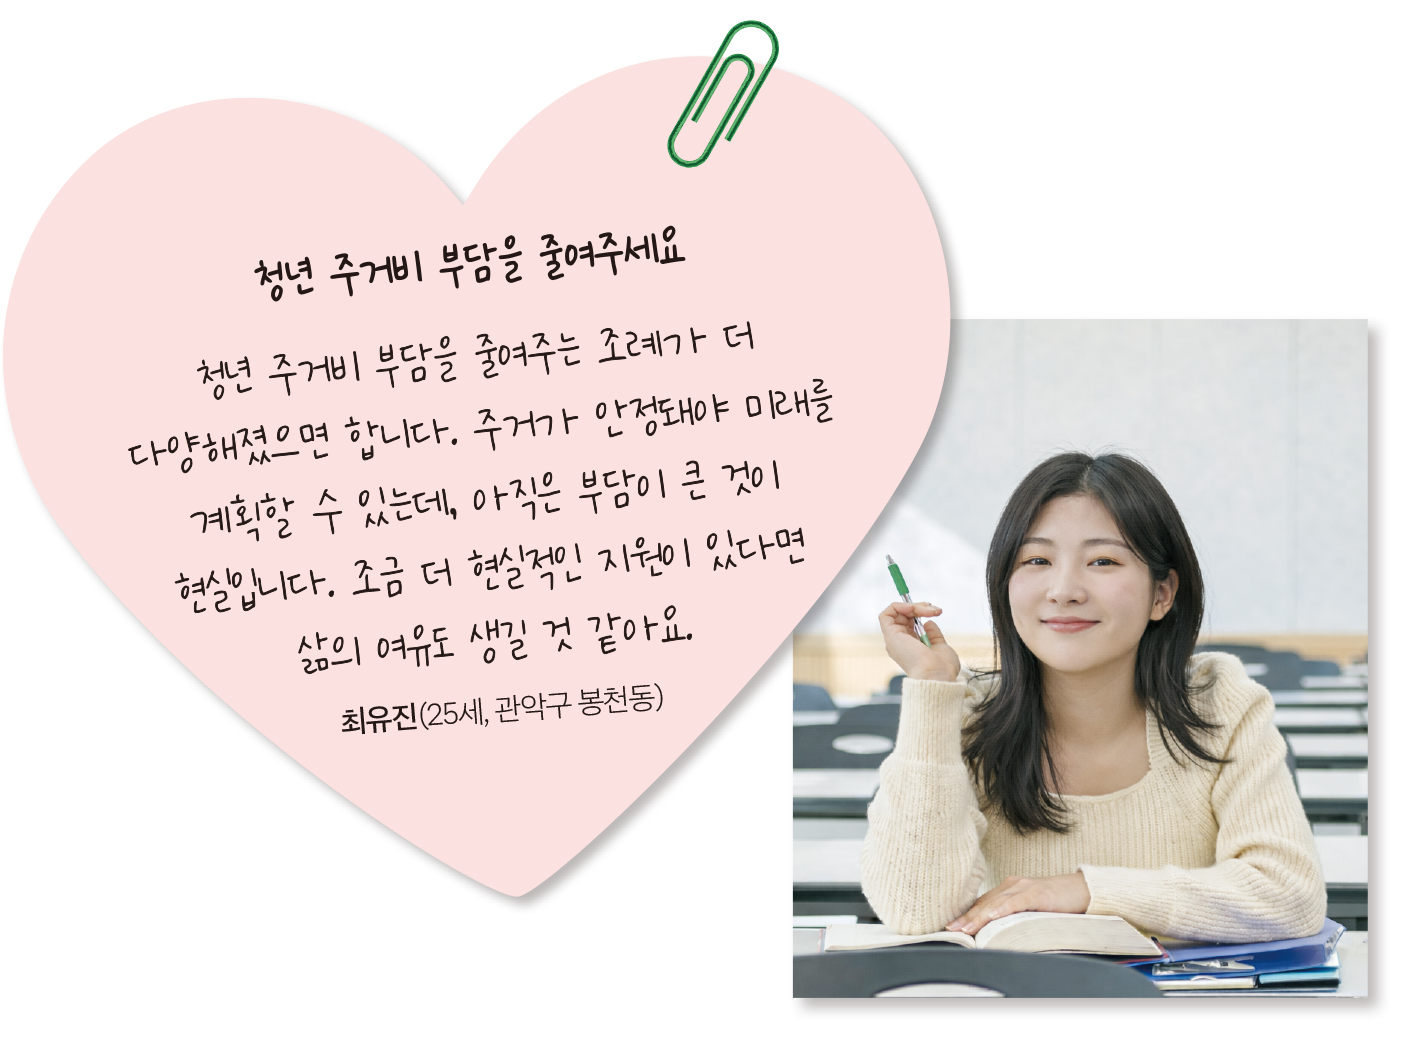 청년 주거비 부담을 줄여주세요
청년 주거비 부담을 줄여주는 조례가 더
다양해졌으면 합니다. 주거가 안정돼야 미래를
계획할 수 있는데, 아직은 부담이 큰 것이
현실입니다. 조금 더 현실적인 지원이 있다면
삶의 여유도 생길 것 같아요.
최유진(25세, 관악구 봉천동)